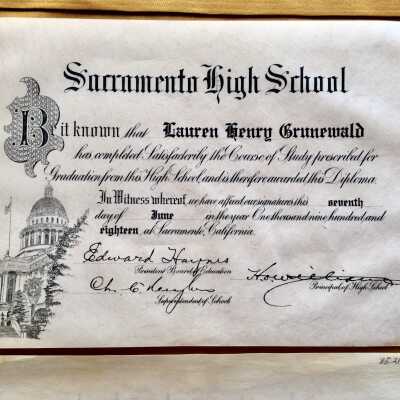 Sacramento High School
Be it known that Lauren Henry Grunewald
has completed Satisfactorily the Course of Study prescribed for
Graduation from this High School, and is therefore awarded this Diploma.
In Witness whereof we have affixed our signatures this seventh
day of June in the year One thousand nine hundred and
eighteen at Sacramento, California.
Edward Haynes
President Board of Education
Ch. C.
Superintendent of Schools
Principal of High School